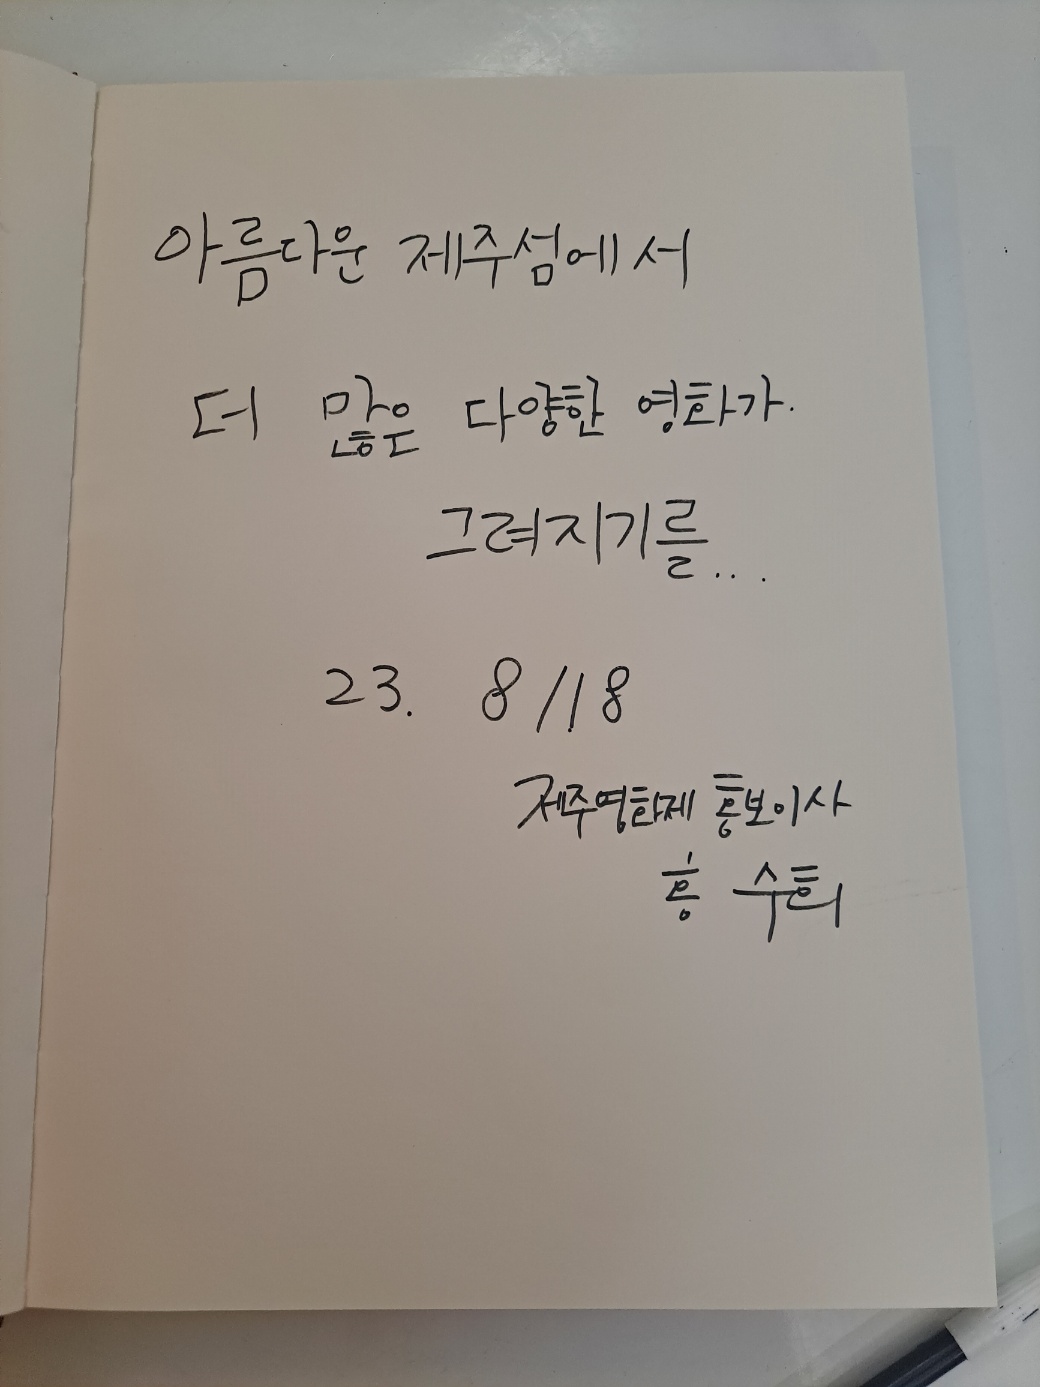 아름다운 제주섬에서
더 많은 다양한 영화가.
그려지기를...
23. 8/18
제주영화제 홍보이사
홍 수희